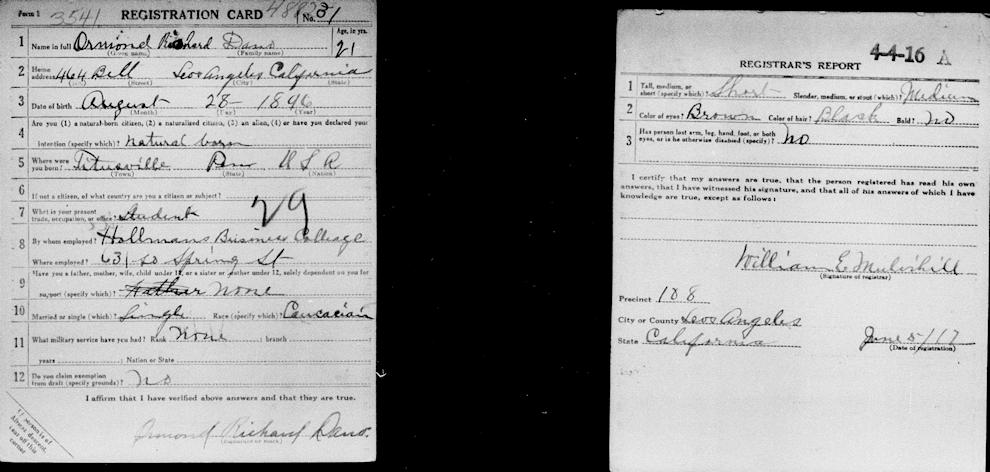 Form 1 3541 REGISTRATION CARD No. 81
1 Name in full Ormond Richard Dano Age, in yrs. 21
(Given name) (Family name)
2 Home address 464 Bell Los Angeles California
(Street) (City) (State)
3 Date of birth August 28 1896
(Month) (Day) (Year)
4 Are you (1) a natural-born citizen, (2) a naturalized citizen, (3) an alien, (4) or have you declared your
intention (specify which)? Natural born
5 Where were you born? Titusville Pen U S A
(Town) (State) (Nation)
6 If not a citizen, of what country are you a citizen or subject?
7 What is your present trade, occupation, or office? Student 29
8 By whom employed? Hollmans Business College
Where employed? 631 So Spring St
9 Have you a father, mother, wife, child under 12, or a sister or brother under 12, solely dependent on you for
support (specify which)? Father None
10 Married or single (which)? Single Race (specify which)? Caucacian
11 What military service have you had? Rank None ; branch
years ; Nation or State
12 Do you claim exemption from draft (specify grounds)? No
I affirm that I have verified above answers and that they are true.
Ormond Richard Dano.
(Signature or mark)
If person is of African descent, tear off this corner
4-4-16 A
REGISTRAR'S REPORT
1 Tall, medium, or short (specify which)? Short Slender, medium, or stout (which)? Medium
2 Color of eyes? Brown Color of hair? Black Bald? No
3 Has person lost arm, leg, hand, foot, or both
eyes, or is he otherwise disabled (specify)? No
I certify that my answers are true, that the person registered has read his own
answers, that I have witnessed his signature, and that all of his answers of which I have
knowledge are true, except as follows:
William E
(Signature of registrar)
Precinct 188
City or County Los Angeles
State California June 5/17
(Date of registration)